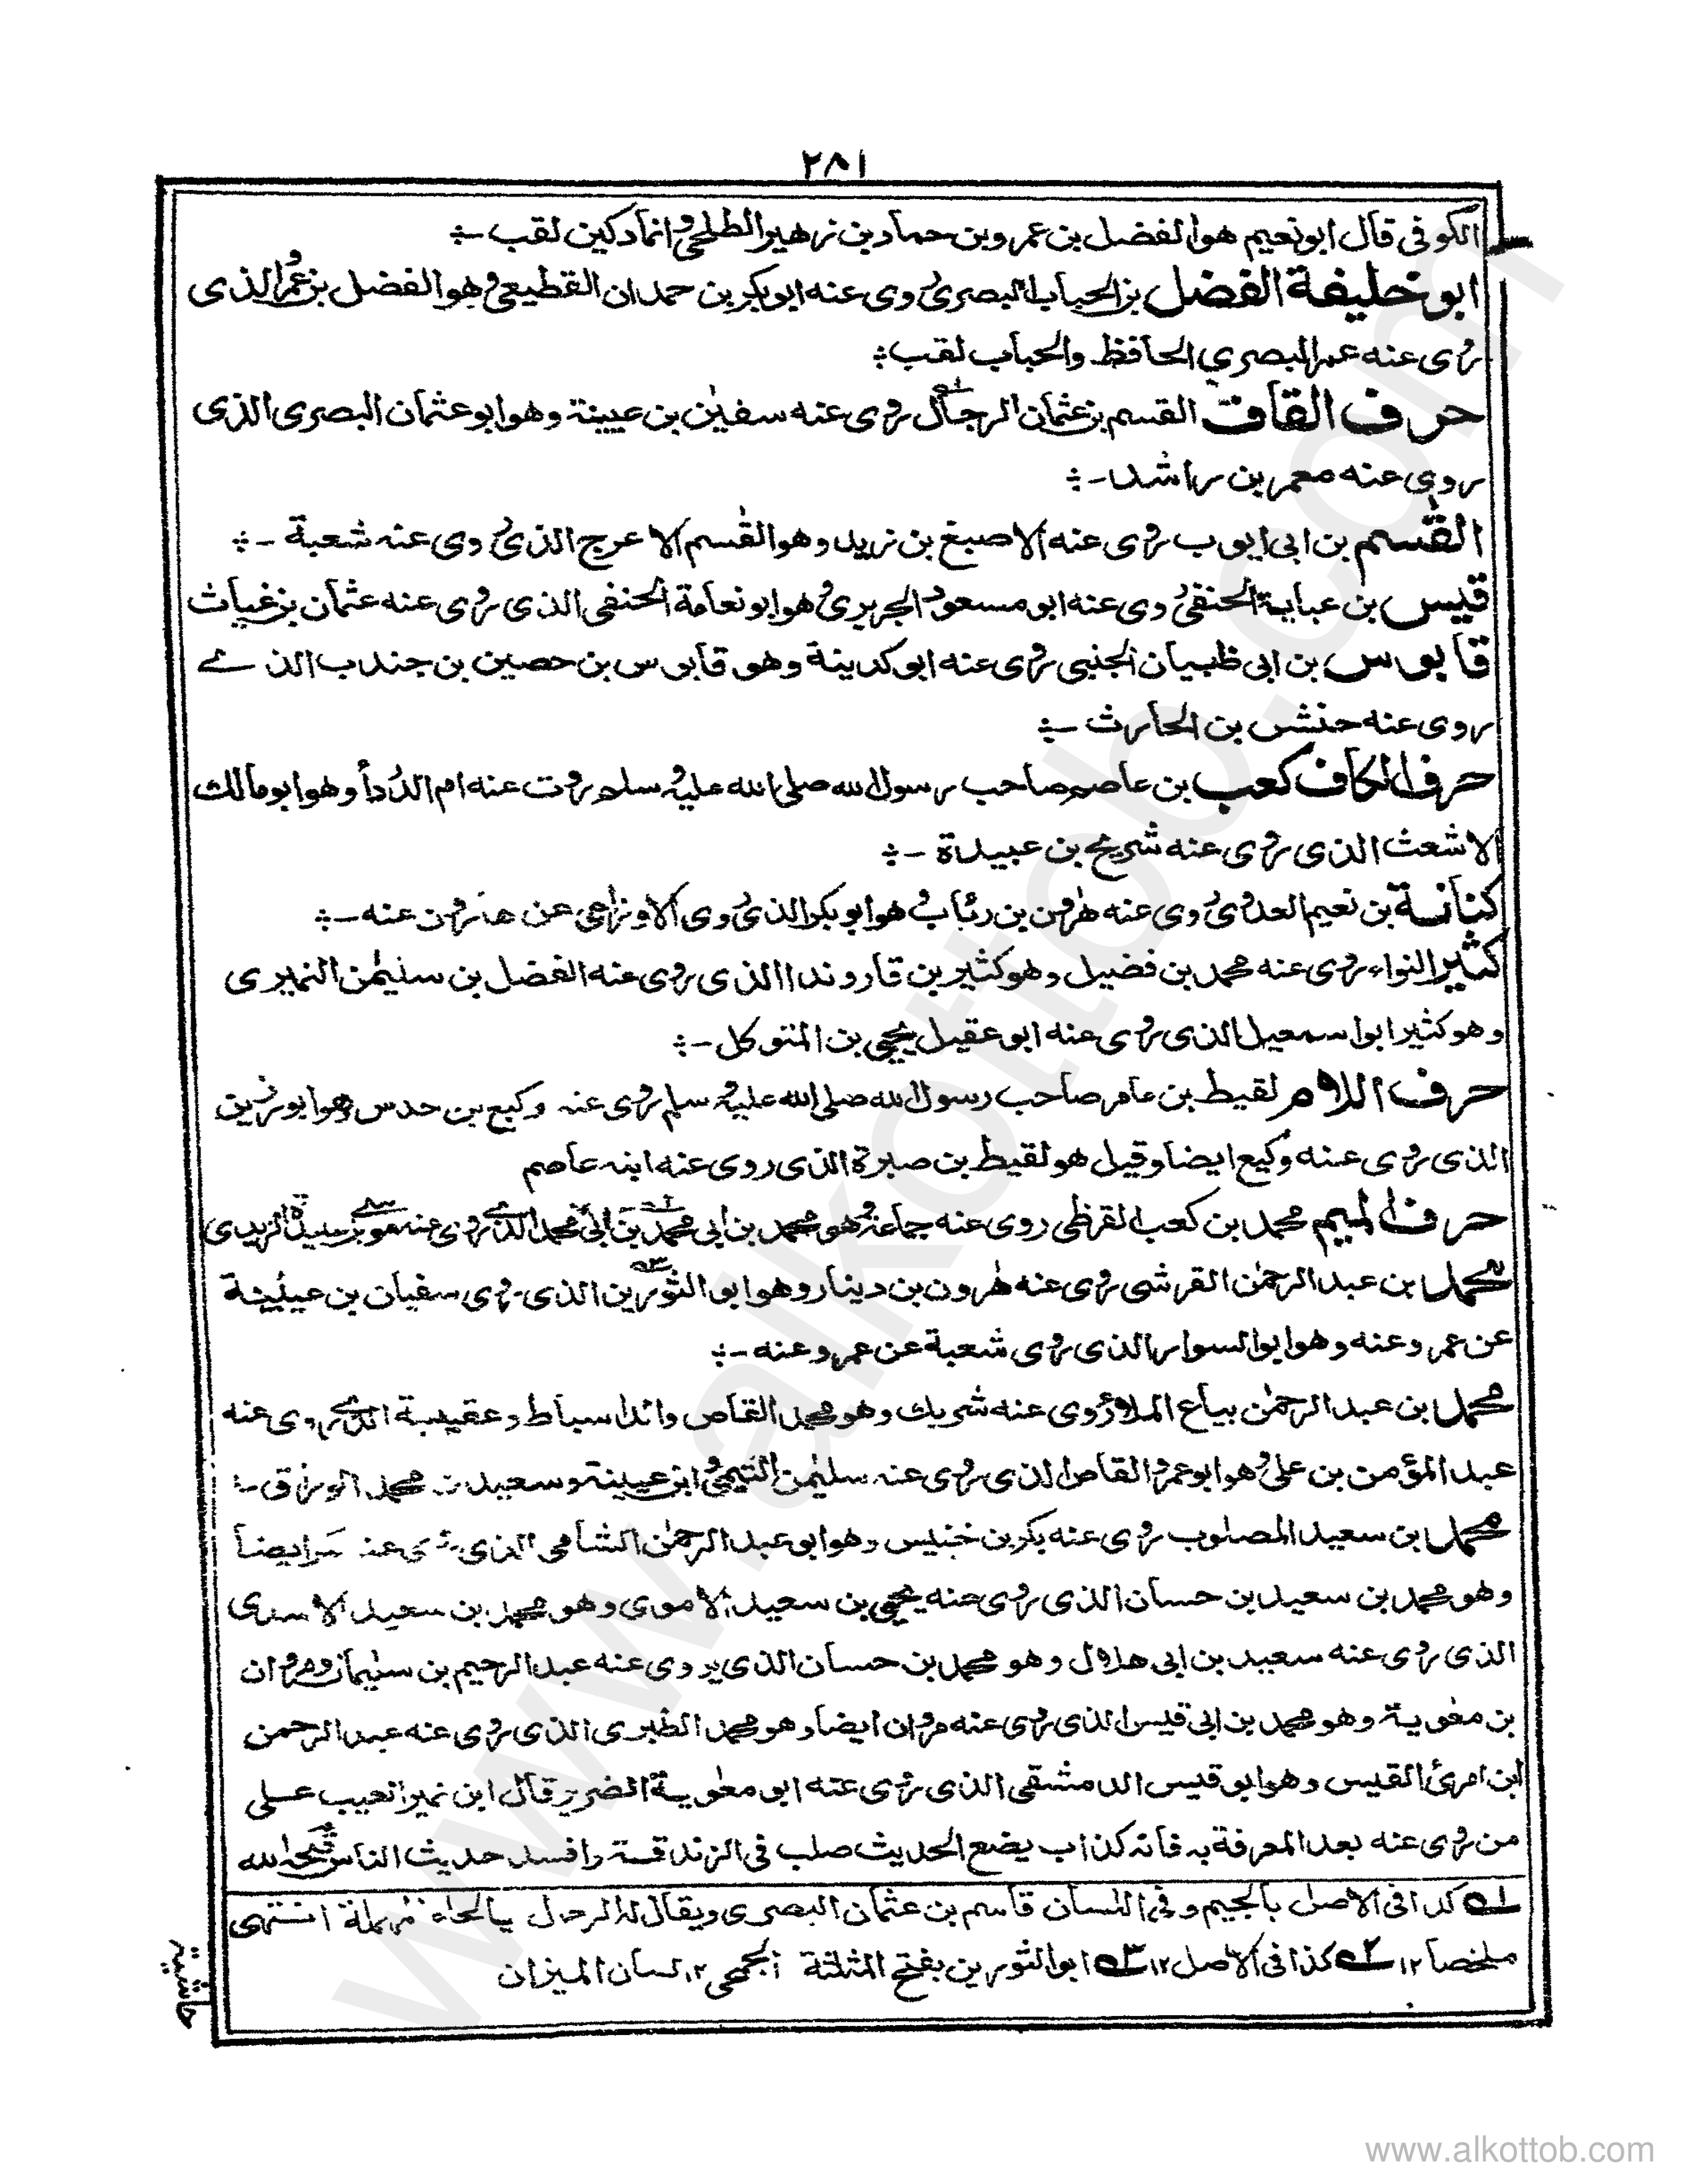 ٢٨١
الكوفى قال ابونعيم هوالفضل بن عمرو بن حماد بن زهير الطلحى وانما دكين لقب
ابو خليفة الفضل بن الحباب البصرى روى عنه ابوبكر بن حمدان القطيعى وهو الفضل بن عمر الذى
روى عنه عمر البصرى الحافظ والحباب لقب
حرف القاف القسم بن عثمان الرجال روى عنه سفين بن عيينة وهوابو عثمان البصرى الذى
روى عنه معمر بن راشد -
القسم بن ابى ايوب روى عنه الاصبغ بن زيد وهو القسم الاعرج الذى روى عنه شعبة -
قيس بن عباية الحنفى روى عنه ابو مسعود الجريرى وهوابونعامة الحنفى الذى روى عنه عثمان بن غياث
قابوس بن ابى ظبيان الجنبى روى عنه ابوكدينة وهو قابوس بن حصين بن جندب الذى
روى عنه حنش بن الحارث -
حرف الكاف كعب بن عاصم صاحب رسول الله صلى الله عليه وسلم روت عنه ام الدردأ وهوابو مالك
الاشعث الذى روى عنه شريح بن عبيدة -
كنانة بن نعيم العدوى روى عنه هرون بن رئاب وهوابوبكر الذى روى الاوزاعى عن هارون عنه -
كثير النواء روى عنه محمد بن فضيل وهو كثير بن قاروندا الذى روى عنه الفضل بن سليمن النميرى
وهو كثير ابواسمعيل الذى روى عنه ابو عقيل يحيى بن المتوكل -
حرف اللام لقيط بن عامر صاحب رسول الله صلى الله عليه وسلم روى عنه وكيع بن حدس وهوابو رزين
الذى روى عنه وكيع ايضا وقيل هو لقيط بن صبرة الذى روى عنه ابنه عاصم
حرف الميم محمد بن كعب القرظى روى عنه جماعة وهو محمد بن ابى محمد بن ابى محمد الذى روى عنه موسى بن عبيدة الزيدى
محمد بن عبد الرحمن القرشى روى عنه هرون بن دينار وهوابو الثورين الذى روى سفيان بن عيينة
عن عمرو عنه وهوابو السوار الذى روى شعبة عن عمرو عنه -
محمد بن عبد الرحمن بياع الملاء روى عنه شريك وهو محمد القاص والد اسباط وعقيبة الذى روى عنه
عبد المؤمن بن على وهوابو عمرو القاص الذى روى عنه سليمن التيمى وابن عيينة وسعيد بن محمد الوراق -
محمد بن سعيد المصلوب روى عنه بكر بن خنيس وهوابو عبد الرحمن الشامى الذى روى عنه بكر ايضا
وهو محمد بن سعيد بن حسان الذى روى عنه يحيى بن سعيد الاموى وهو محمد بن سعيد الاسدى
الذى روى عنه سعيد بن ابى هلال وهو محمد بن حسان الذى يروى عنه عبد الرحيم بن سليمان ومروان
بن معوية وهو محمد بن ابى قيس الذى روى عنه مروان ايضا وهو محمد الطبرى الذى روى عنه عبد الرحمن
ابن امرئ القيس وهوابو قيس الدمشقى الذى روى عنه ابو معوية الضرير قال ابن نمير العيب على
من روى عنه بعد المعرفة به فانه كذاب يضع الحديث صلب فى الزندقة وافسد حديث الناس قبحه الله
١ه كذا فى الاصل بالجيم وفى اللسان قاسم بن عثمان البصرى ويقال له الرحال بالحاء مهملة انتهى
ملخصا ١٢ ٢ه كذا فى الاصل ١٢ ٣ه ابو الثورين بفتح المثلثة الجمحى ١٢ لسان الميزان
حاشيه
www.alkottob.com
www.alkottob.com